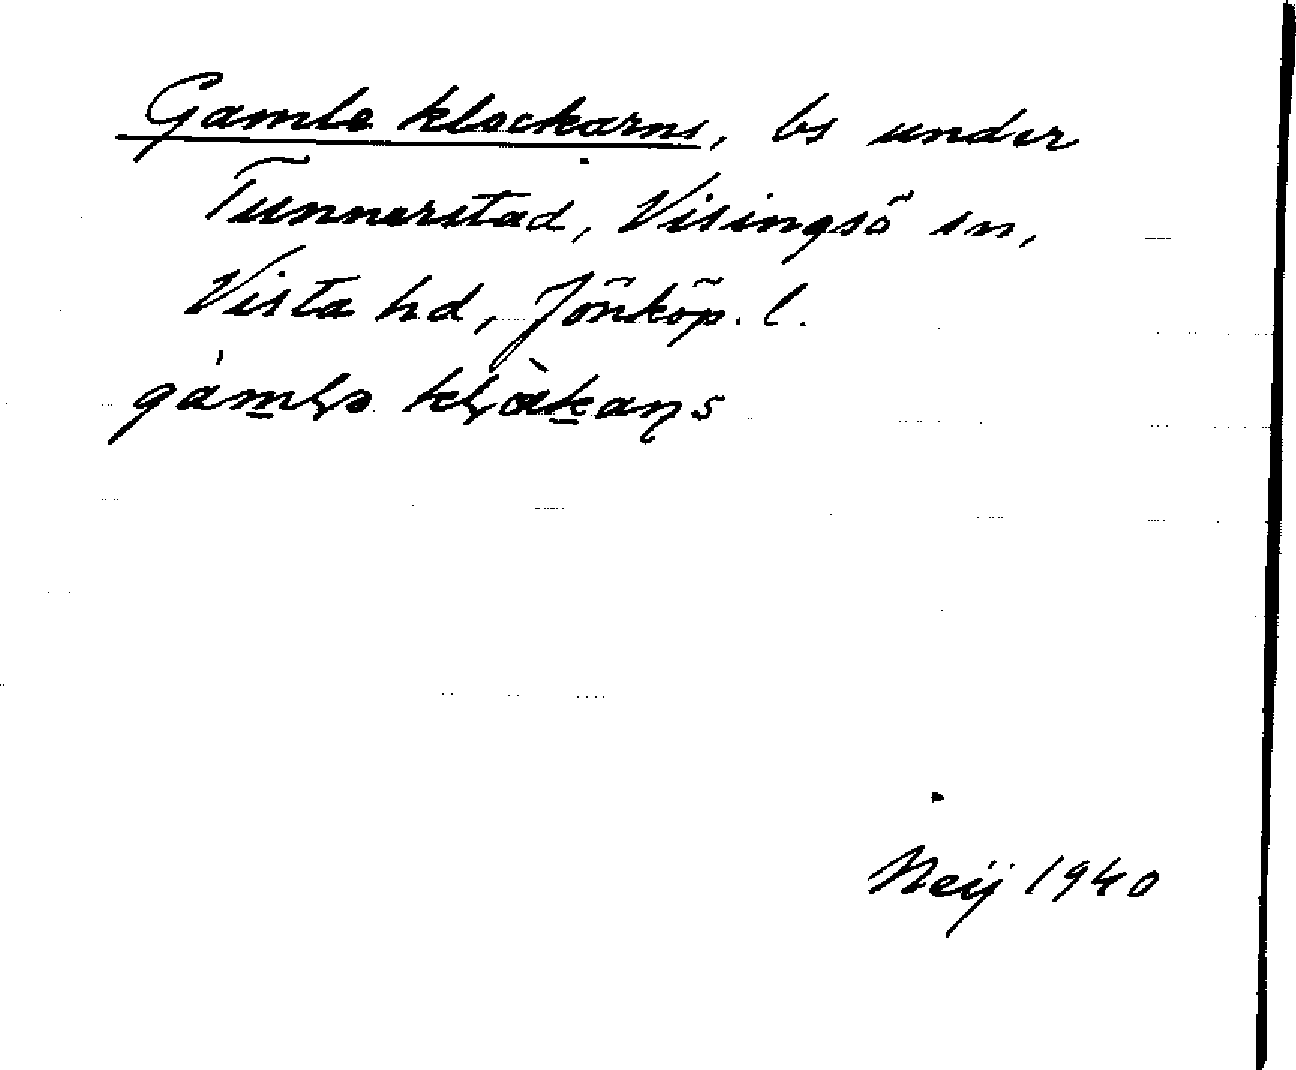 Gamle klockarns, bs under
Tunnerstad, Visingsö sn,
Vista hd, Jönköp. l.
Neij 1940